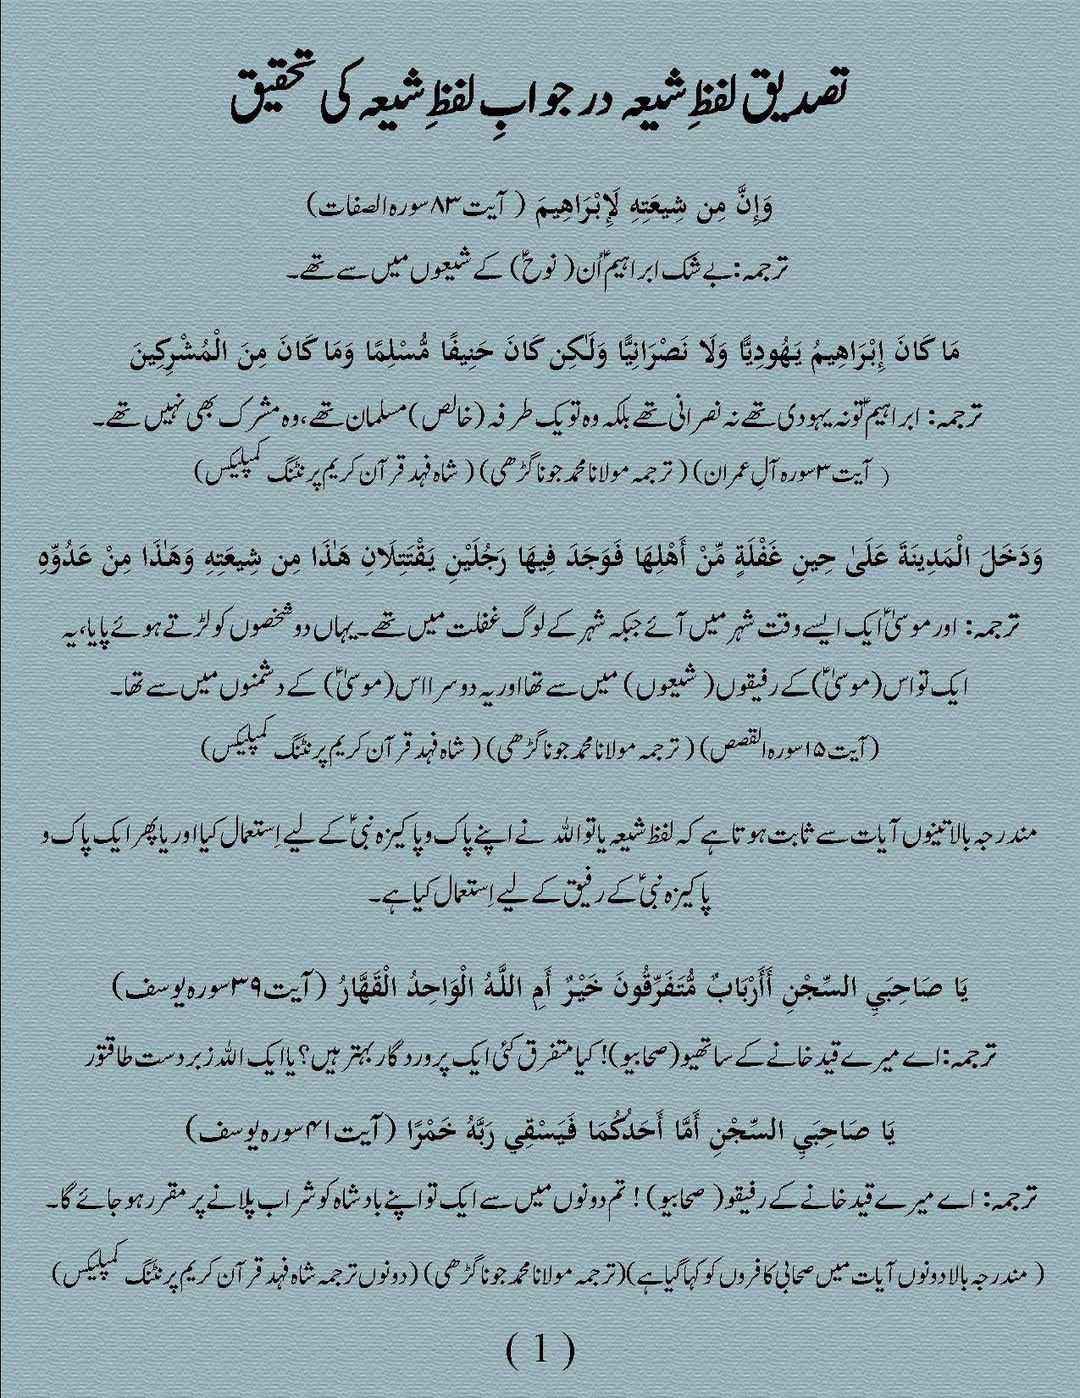 تصدیق لفظِ شیعہ در جوابِ لفظِ شیعہ کی تحقیق
وَإِنَّ مِن شِيعَتِهِ لَإِبْرَاهِيمَ ( آیت ۸۳ سورہ الصفات)
ترجمہ: بے شک ابراہیمؑ اُن( نوحؑ) کے شیعوں میں سے تھے۔
مَا كَانَ إِبْرَاهِيمُ يَهُودِيًّا وَلَا نَصْرَانِيًّا وَلَٰكِن كَانَ حَنِيفًا مُّسْلِمًا وَمَا كَانَ مِنَ الْمُشْرِكِينَ
ترجمہ: ابراہیمؑ تو نہ یہودی تھے نہ نصرانی تھے بلکہ وہ تو یک طرفہ (خالص) مسلمان تھے، وہ مشرک بھی نہیں تھے۔
( آیت ۳ سورہ آلِ عمران) ( ترجمہ مولانا محمد جوناگڑھی) ( شاہ فہد قرآن کریم پرنٹنگ کمپلیکس)
وَدَخَلَ الْمَدِينَةَ عَلَىٰ حِينِ غَفْلَةٍ مِّنْ أَهْلِهَا فَوَجَدَ فِيهَا رَجُلَيْنِ يَقْتَتِلَانِ هَٰذَا مِن شِيعَتِهِ وَهَٰذَا مِنْ عَدُوِّهِ
ترجمہ: اور موسیٰؑ ایک ایسے وقت شہر میں آئے جبکہ شہر کے لوگ غفلت میں تھے۔ یہاں دو شخصوں کو لڑتے ہوئے پایا، یہ
ایک تو اس (موسیٰؑ) کے رفیقوں( شیعوں) میں سے تھا اور یہ دوسرا اس (موسیٰؑ) کے دشمنوں میں سے تھا۔
(آیت ۱۵ سورہ القصص) ( ترجمہ مولانا محمد جوناگڑھی) ( شاہ فہد قرآن کریم پرنٹنگ کمپلیکس)
مندرجہ بالا تینوں آیات سے ثابت ہوتا ہے کہ لفظ شیعہ یا تو اللہ نے اپنے پاک و پاکیزہ نبیؑ کے لیے اِستعمال کیا اور یا پھر ایک پاک و
پاکیزہ نبیؑ کے رفیق کے لیے اِستعمال کیا ہے۔
يَا صَاحِبَيِ السِّجْنِ أَأَرْبَابٌ مُّتَفَرِّقُونَ خَيْرٌ أَمِ اللَّهُ الْوَاحِدُ الْقَهَّارُ (آیت ۳۹ سورہ یوسف)
ترجمہ: اے میرے قید خانے کے ساتھیو (صحابیو)! کیا متفرق کئی ایک پروردگار بہتر ہیں؟ یا ایک اللہ زبردست طاقتور
يَا صَاحِبَيِ السِّجْنِ أَمَّا أَحَدُكُمَا فَيَسْقِي رَبَّهُ خَمْرًا (آیت ۴۱ سورہ یوسف)
ترجمہ: اے میرے قید خانے کے رفیقو( صحابیو) ! تم دونوں میں سے ایک تو اپنے بادشاہ کو شراب پلانے پر مقرر ہو جائے گا۔
( مندرجہ بالا دونوں آیات میں صحابی کافروں کو کہا گیا ہے)(ترجمہ مولانا محمد جوناگڑھی) (دونوں ترجمہ شاہ فہد قرآن کریم پرنٹنگ کمپلیکس)
( 1 )